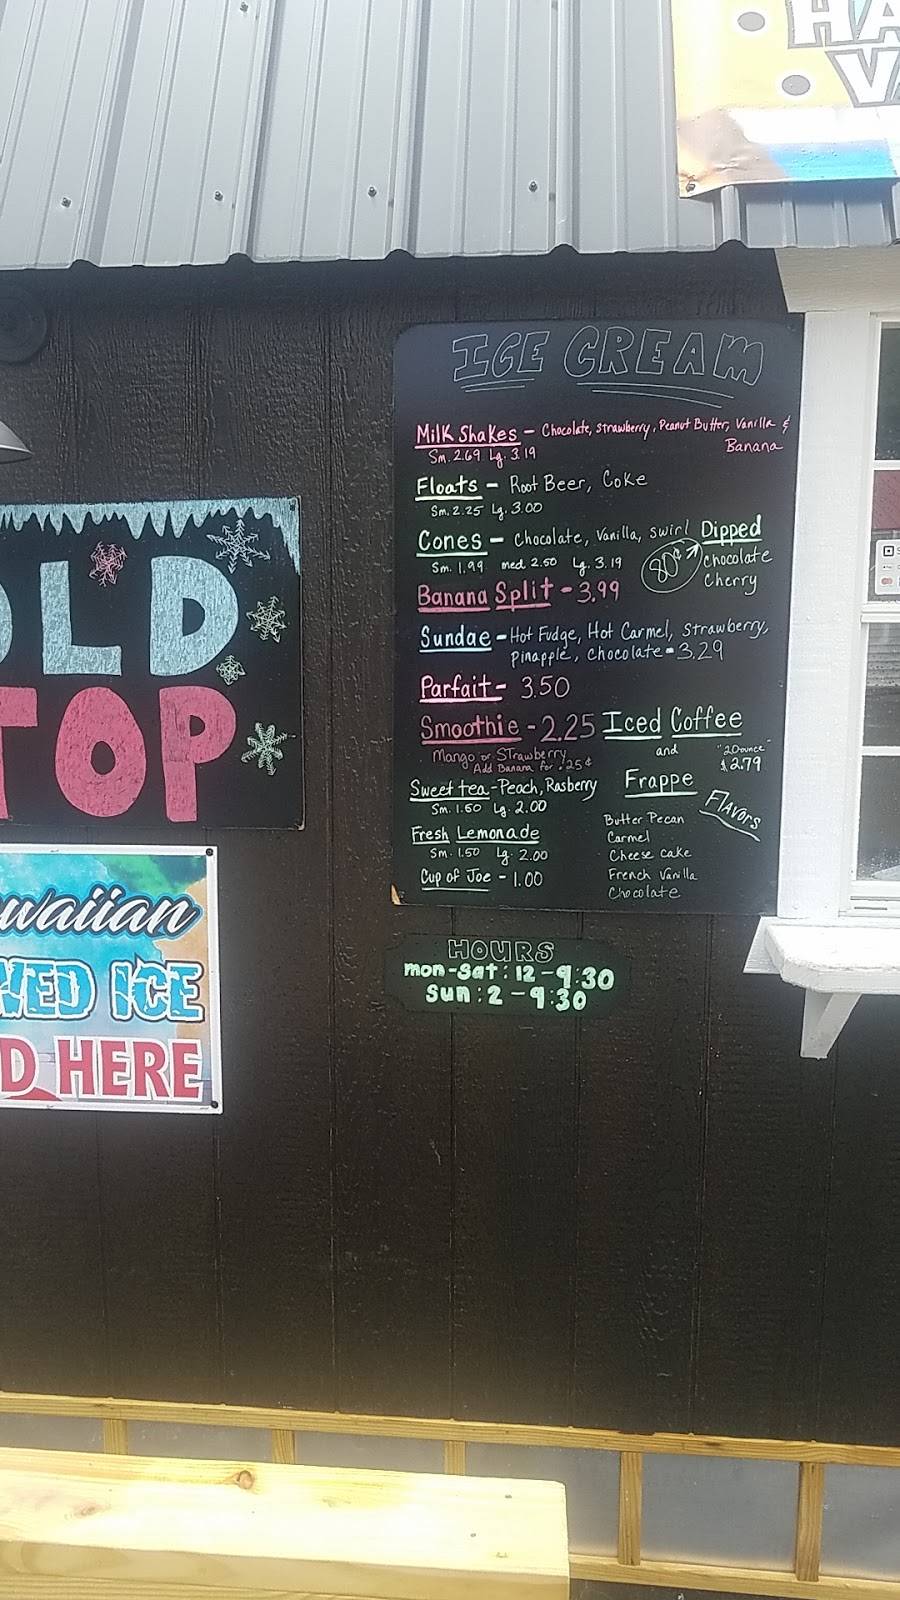 HA
VA
ICE CREAM
Milk Shakes - Chocolate, strawberry, Peanut Butter, Vanilla &
Banana
Sm. 2.69 Lg. 3.19
Floats - Root Beer, Coke
Sm. 2.25 Lg. 3.00
Cones - Chocolate, Vanilla, swirl
Sm. 1.99 med 2.50 Lg. 3.19
80¢
Dipped
Chocolate
Cherry
Banana Split - 3.99
Sundae - Hot Fudge, Hot Carmel, Strawberry,
pinapple, chocolate - 3.29
Parfait - 3.50
Smoothie - 2.25
Mango or Strawberry
Add Banana for .25¢
Sweet tea - Peach, Rasberry
Sm. 1.50 Lg. 2.00
Fresh Lemonade
Sm. 1.50 Lg. 2.00
Cup of Joe - 1.00
Iced Coffee
and
Frappe
"20ounce"
$2.79
Flavors
Butter Pecan
Carmel
Cheese cake
French Vanilla
Chocolate
HOURS
mon-Sat: 12-9:30
Sun: 2-9:30
OLD
TOP
waiian
VED ICE
D HERE